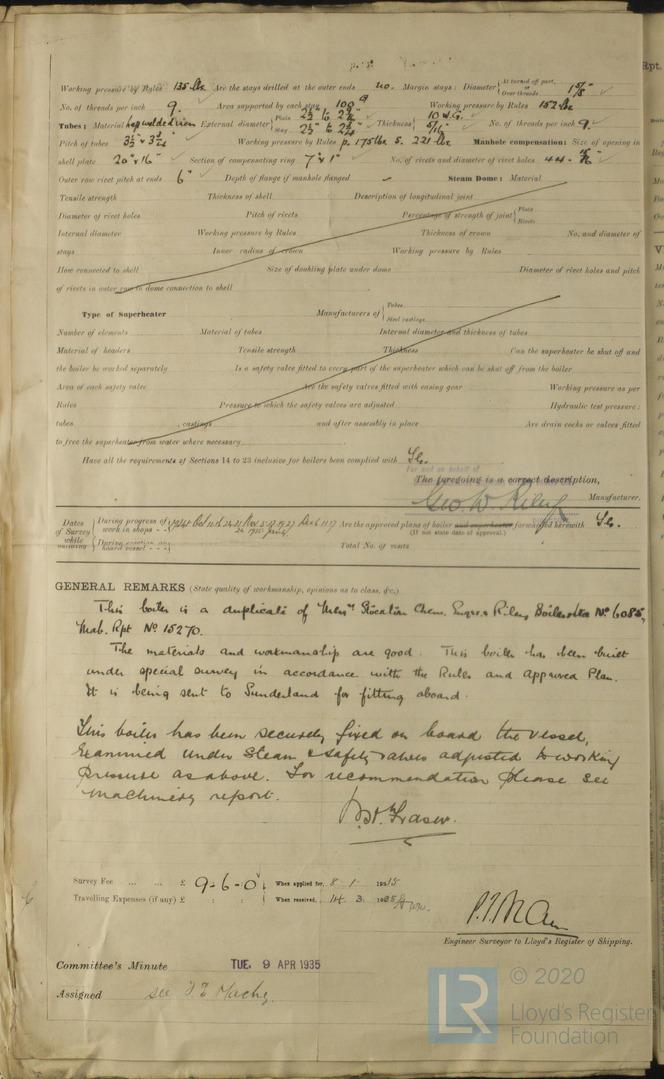 Working pressure by Rules 135 lbs Are the stays drilled at the outer ends no. Margin stays: Diameter { At turned off part, or Over threads 1 5/8"
No. of threads per inch 9. Area supported by each stay 100 Working pressure by Rules 152 lbs
Tubes: Material lap welded iron External diameter { Plain 2½ & 2¾ Stay 2½" & 2¾" Thickness { 10 W.G. 5/16" No. of threads per inch 9.
Pitch of tubes Working pressure by Rules p. 175 lbs S. 221 lbs Manhole compensation: Size of opening in
shell plate 20" x 16" Section of compensating ring 7" x 1" No. of rivets and diameter of rivet holes 44 -
Outer row rivet pitch at ends 6" Depth of flange if manhole flanged Steam Dome: Material
Tensile strength Thickness of shell Description of longitudinal joint
Diameter of rivet holes Pitch of rivets Percentage of strength of joint { Plate Rivets
Internal diameter Working pressure by Rules Thickness of crown No. and diameter of
stays Inner radius of crown Working pressure by Rules
How connected to shell Size of doubling plate under dome Diameter of rivet holes and pitch
of rivets in outer row in dome connection to shell
Type of Superheater Manufacturers of { Tubes Steel castings
Number of elements Material of tubes Internal diameter and thickness of tubes
Material of headers Tensile strength Thickness Can the superheater be shut off and
the boiler be worked separately Is a safety valve fitted to every part of the superheater which can be shut off from the boiler
Area of each safety valve Are the safety valves fitted with easing gear Working pressure as per
Rules Pressure to which the safety valves are adjusted Hydraulic test pressure:
tubes , castings and after assembly in place Are drain cocks or valves fitted
to free the superheater from water where necessary
Have all the requirements of Sections 14 to 23 inclusive for boilers been complied with
For and on behalf of
The foregoing is a correct description,
Geo. W. Riley Manufacturer.
Dates of Survey while building { During progress of work in shops - - 1934 Oct Nov Dec Are the approved plans of boiler and superheater forwarded herewith
(If not state date of approval.)
During erection on board vessel - - - Total No. of visits
GENERAL REMARKS (State quality of workmanship, opinions as to class, &c.)
This boiler is a duplicate of Messrs Stockton Chem. Engrs & Riley Boilers No 6085,
Mab. Rpt No 15270.
The materials and workmanship are good. This boiler has been built
under special survey in accordance with the Rules and approved Plan.
It is being sent to Sunderland for fitting aboard.
This boiler has been securely fixed on board the vessel,
Examined under Steam & safety valves adjusted to working
Pressure as above. For recommendation please see
Machinery report.
Fraser.
Survey Fee ... ... £ 9-6-0 When applied for, 8 1 1935
Travelling Expenses (if any) £ : : When received, 14 3 1935
Engineer Surveyor to Lloyd's Register of Shipping.
Committee's Minute TUE. 9 APR 1935
Assigned see
© 2020
LR Lloyd's Register
Foundation
Rpt.